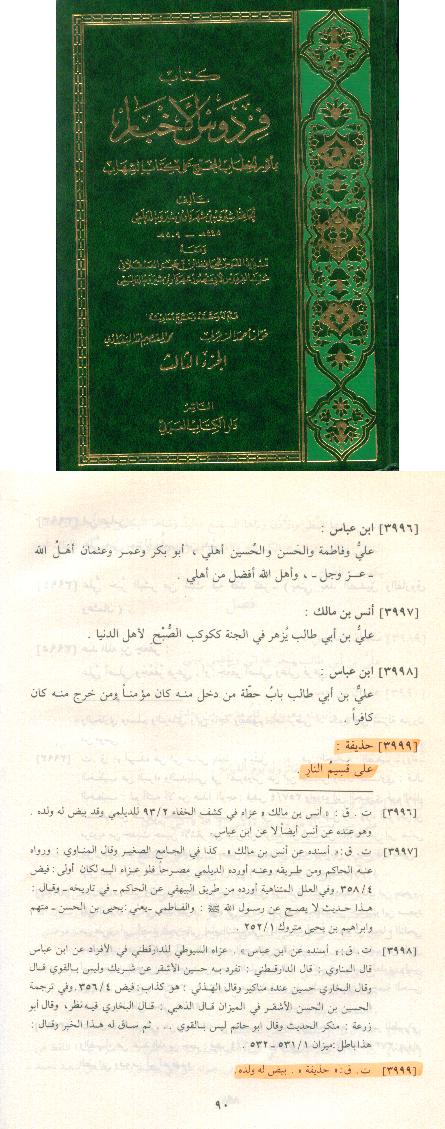 كتاب
فردوس الأخبار
بمأثور الخطاب المخرج على كتاب الشهاب
تأليف
٤٤٥هـ — ٥٠٩هـ
ومعه
الجزء الثالث
الناشر
دار الكتاب العربي
[٣٩٩٦] ابن عباس :
عليُّ وفاطمة والحَسن والحُسين أهلي ، أبو بكر وعمر وعثمان أهَلُ الله
ـ عـز وجل ـ ، وأهل الله أفضل من أهلي .
[٣٩٩٧] أنس بن مالك :
عليُّ بن أبي طالب يُزهر في الجنة ككوكب الصُّبْح لأهل الدنيا .
[٣٩٩٨] ابن عباس :
عليُّ بن أبي طالب بابُ حطّة من دخل منه كان مؤمناً ومن خرج منه كان
كافراً .
[٣٩٩٩] حذيفة :
على قسيمُ النارِ .
[٣٩٩٦] ت . ق : « أنس بن مالك » عزاه في كشف الخفاء ٩٣/٢ للديلمي وقد بيض له ولده .
وهو عنده عن أنس أيضاً لا عن ابن عباس.
[٣٩٩٧] ت . ق: « أسنده عن أنس بن مالك » . كذا في الجامع الصغير وقال المناوي : ورواه
عنه الحاكم ومن طريقه وعنه أورده الديلمي مصرحاً فلو عزاه اليه لكان أولى: فيض
٣٥٨/٤. وفي العلل المتناهية أورده من طريق البيهقي عن الحاكم ـ في تاريخه ـ وقال :
هذا حديث لا يصح عن رسول الله ﷺ : والفاطمي ـ يعني: يحيى بن الحسن ـ متهم
وابراهيم بن يحيى متروك ٢٥٢/١ .
[٣٩٩٨] ت . ق: « أسنده عن ابن عباس» . عزاه السيوطي للدارقطني في الأفراد عن ابن عباس
قال المناوي : قال الدارقطني : تفرد به حسين الأشقر عن شريك وليس بالقوي قال
وقال البخاري حسين عنده مناكير وقال الهذلي : هو كذاب: فيض ٣٥٦/٤. وفي ترجمة
الحسين بن الحسن الأشقر في الميزان قال الذهبي : قال البخاري فيه نظر، وقال أبو
زرعة : منكر الحديث وقال أبو حاتم ليس بالقوي . . ثم ساق له هذا الخبر وقال :
هذا باطل: ميزان ٥٣١/١ ـ ٥٣٢ .
[٣٩٩٩] ت . ق: « حذيفة » . بيض له ولده.
٩٠